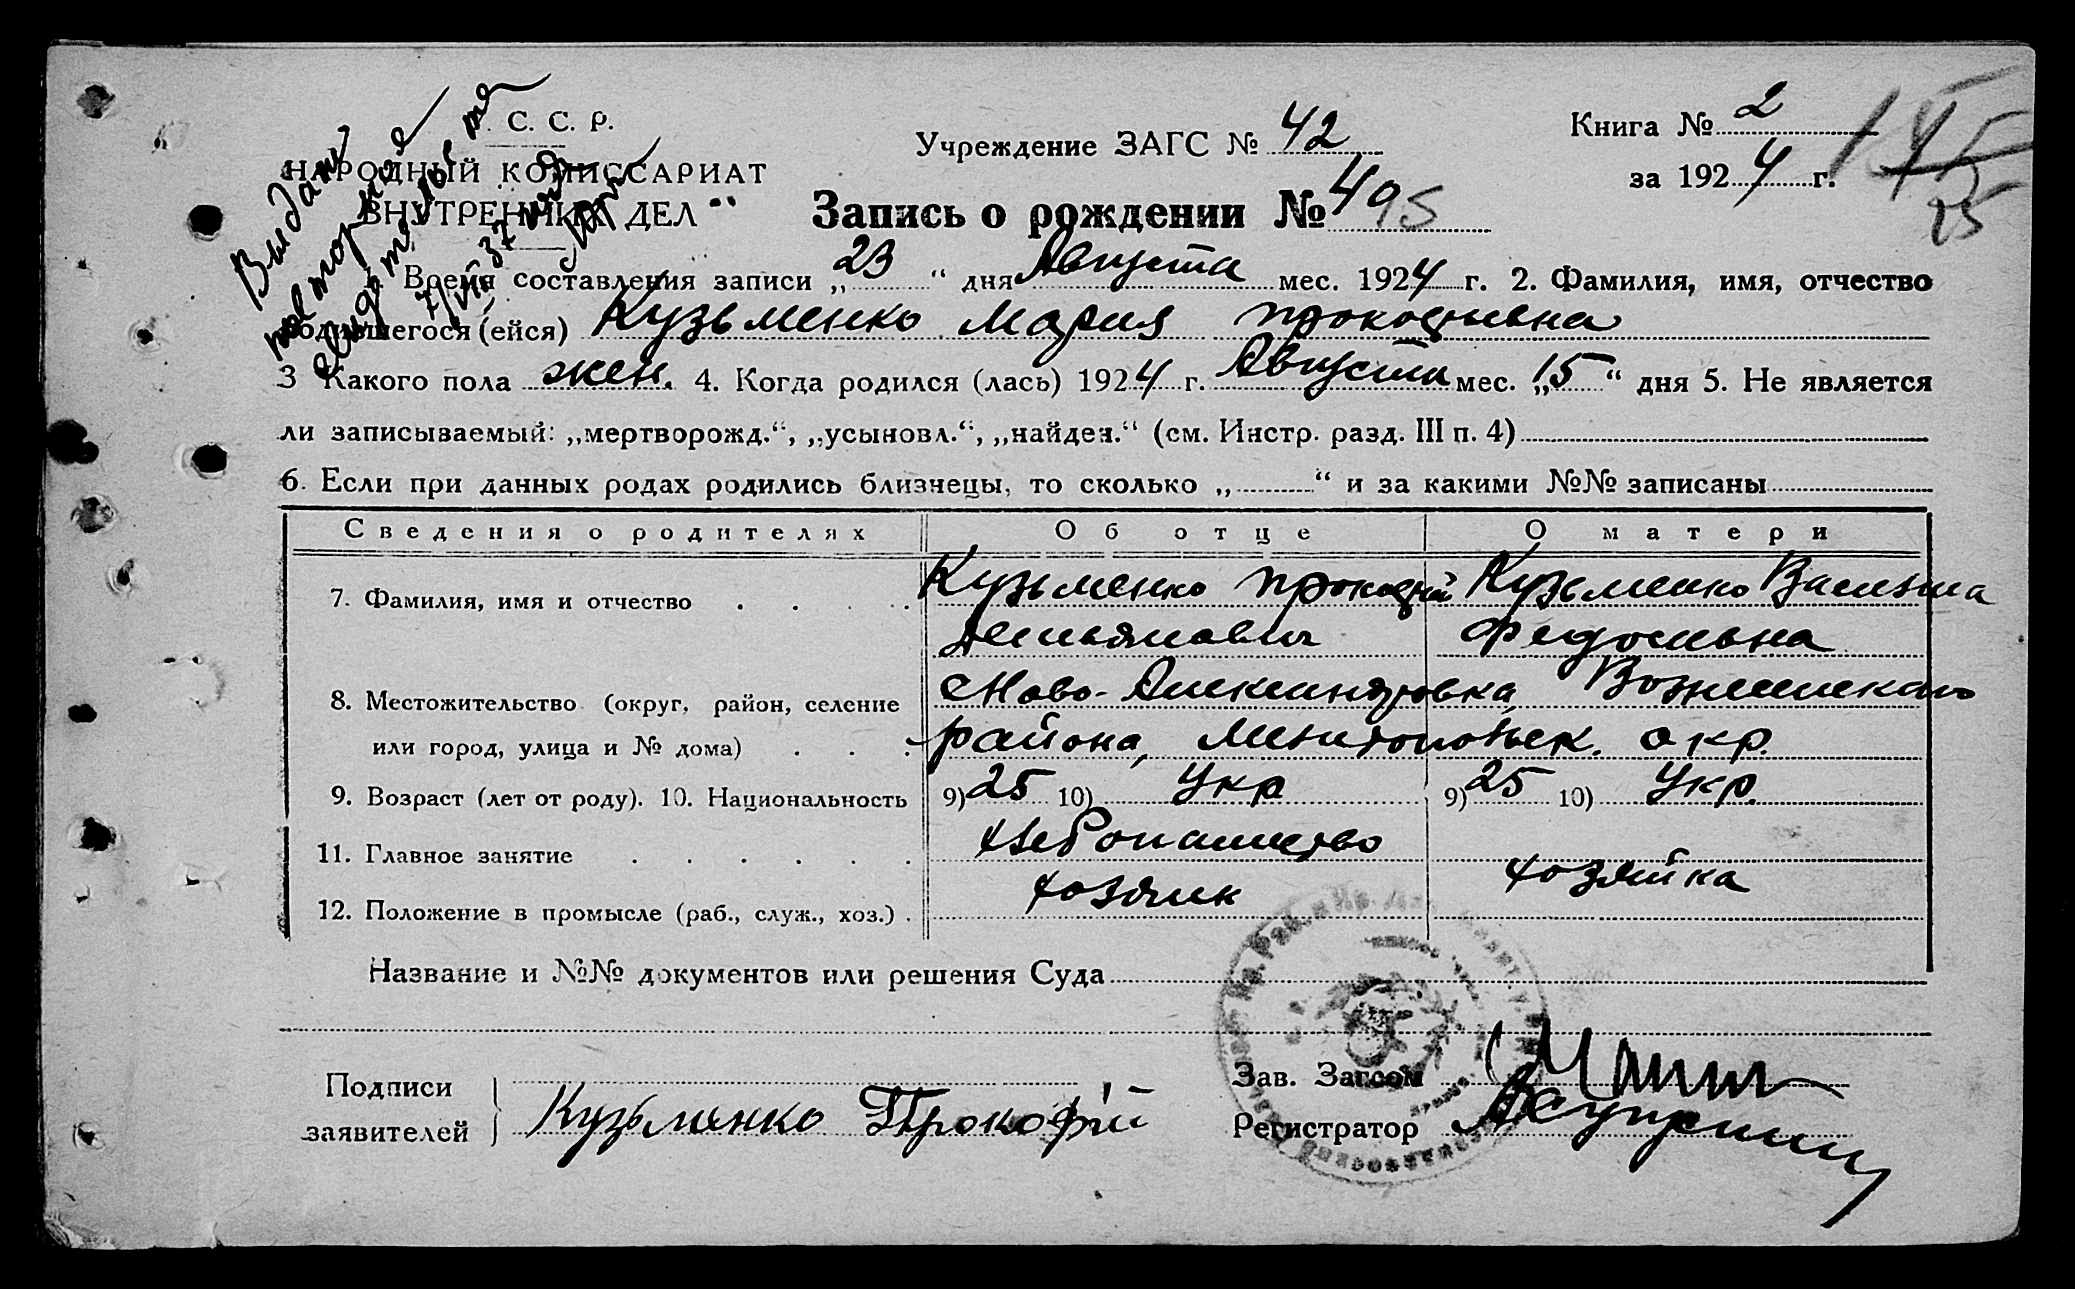 Выдано
повторное
свидетельство
7/VII 37 года
. С. С. Р.
НАРОДНЫЙ КОМИССАРИАТ
ВНУТРЕННИХ ДЕЛ
Учреждение ЗАГС № 42
Книга № 2
за 1924 г.
Запись о рождении № 40
1. Время составления записи „23“ дня Августа мес. 1924 г. 2. Фамилия, имя, отчество
родившегося (ейся) Кузьменко Мария Прокофьевна
3 Какого пола жен. 4. Когда родился (лась) 1924 г. Августа мес. „15“ дня 5. Не является
ли записываемый: „мертворожд.“, „усыновл.“, „найден.“ (см. Инстр. разд. III п. 4)
6. Если при данных родах родились близнецы, то сколько „ “ и за какими №№ записаны
Сведения о родителях Об отце О матери
7. Фамилия, имя и отчество . . . . Кузьменко Прокофий Кузьменко Василиса
Демьянович Федоровна
8. Местожительство (округ, район, селение Ново-Александровка, Вознесенского
или город, улица и № дома) . . . района, Мелитопольск. окр.
9. Возраст (лет от роду). 10. Национальность 9) 25 10) Укр 9) 25 10) Укр.
11. Главное занятие . . . . . . Хлебопашество
12. Положение в промысле (раб., служ., хоз.) . хозяин хозяйка
Название и №№ документов или решения Суда
Подписи
заявителей } Кузьменко Прокофій
Зав. Загсом
Регистратор